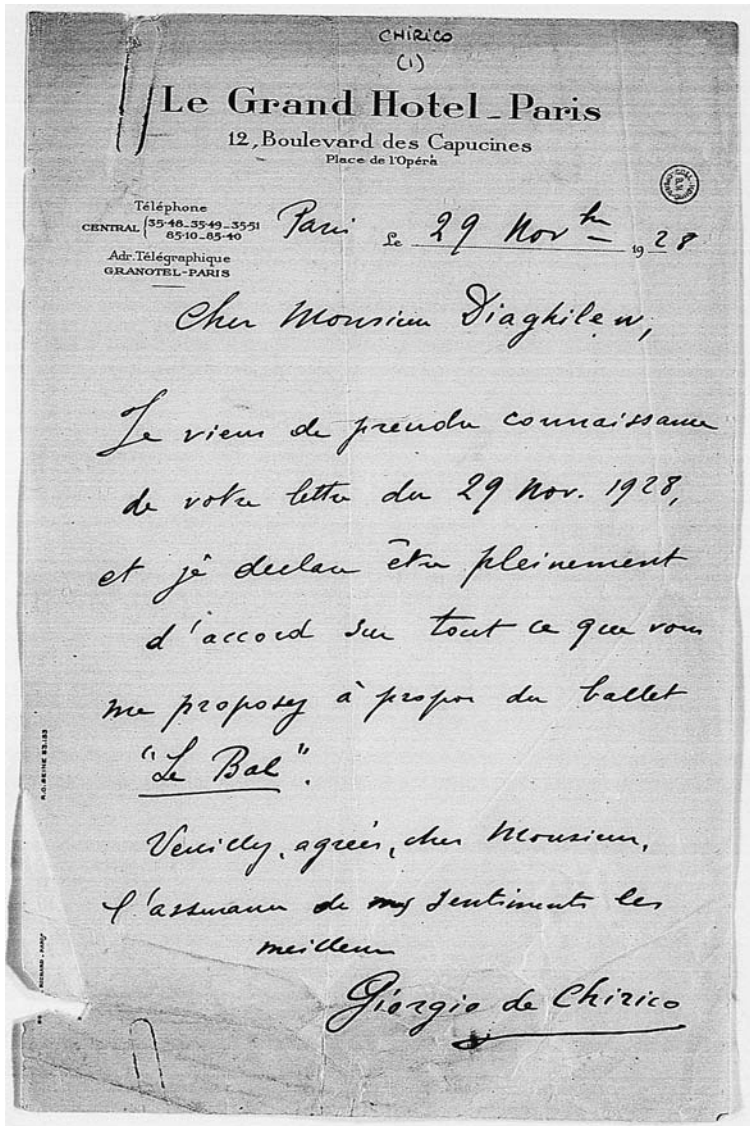 CHIRICO
(1)
Le Grand Hotel - Paris
12, Boulevard des Capucines
Place de l'Opéra
Téléphone
CENTRAL 35-48_35-49_35-51
85-10_85-40
Adr. Télégraphique
GRANOTEL-PARIS
Paris Le 29 Nov bre 1928
Cher Monsieur Diaghilew,
Je viens de prendre connaissance
de votre lettre du 29 Nov. 1928,
et je declare être pleinement
d'accord sur tout ce que vous
me proposez à propos du ballet
"Le Bal".
Veuillez, agréer, cher Monsieur,
l'assurance de mes sentiments les
meilleurs
Giorgio de Chirico
R.C. SEINE 53.183